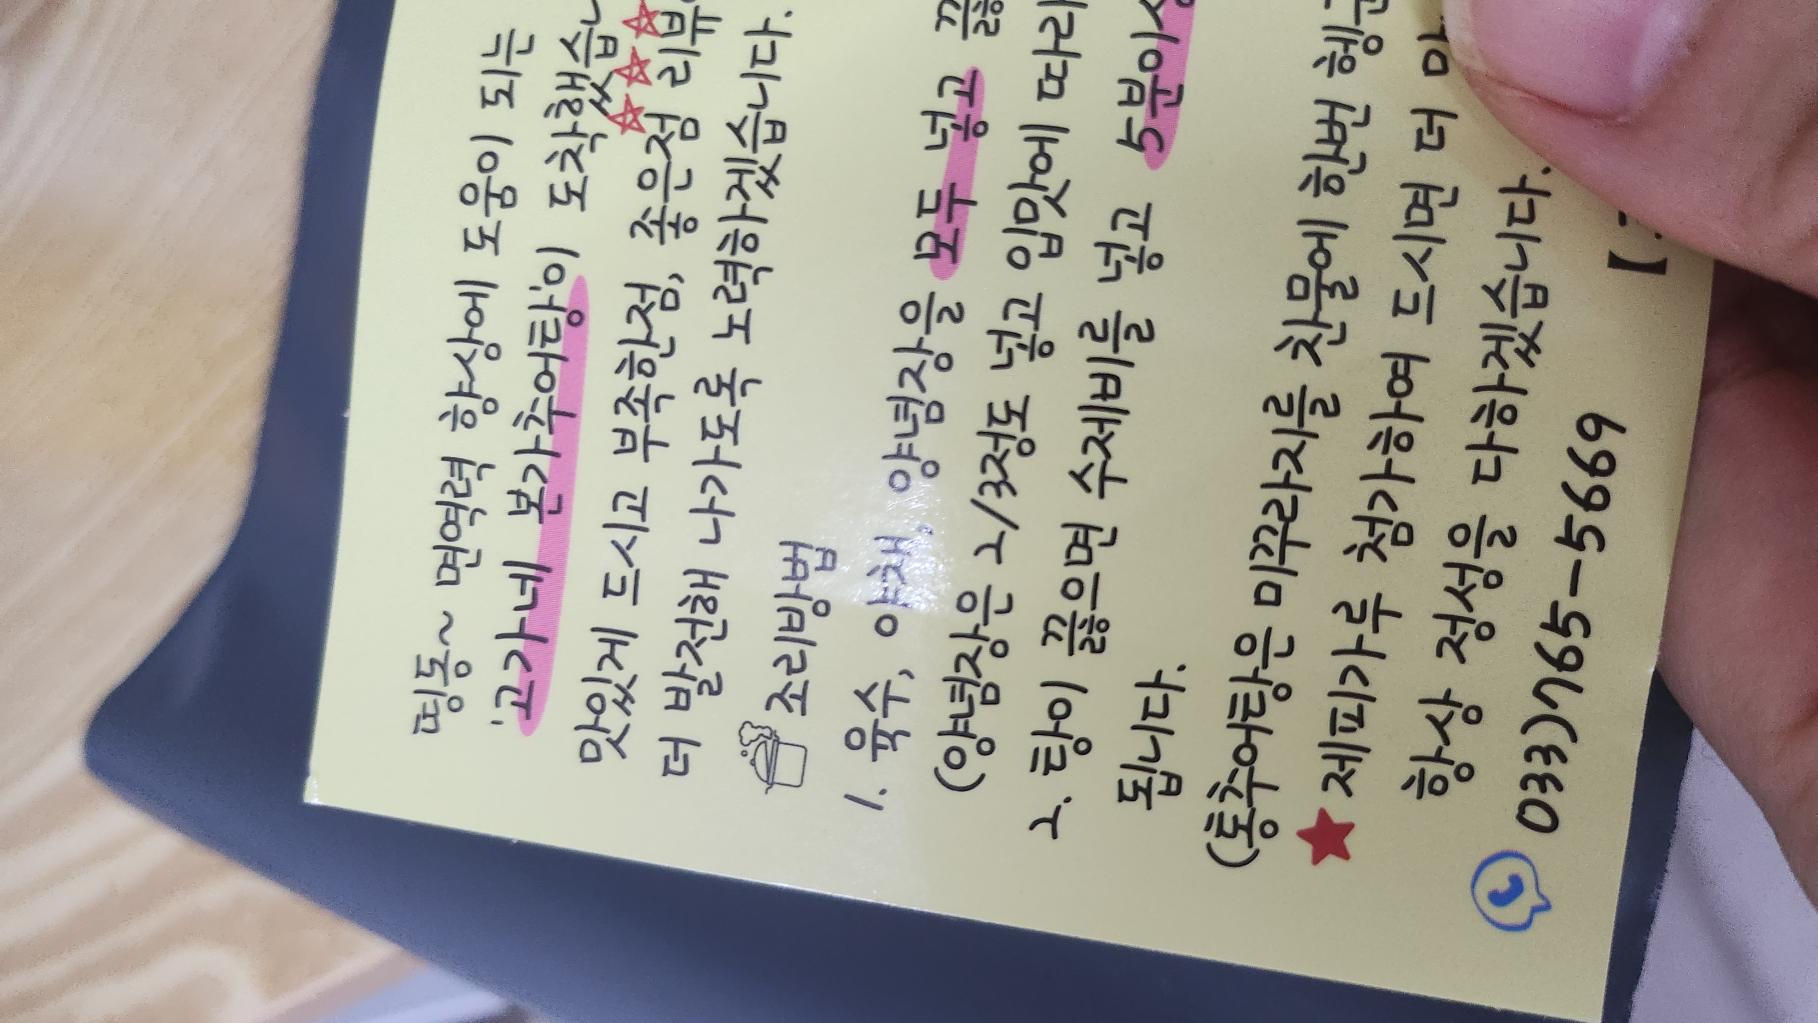 띵동~ 면역력 향상에 도움이 되는
'고가네 본가추어탕'이 도착했습
맛있게 드시고 부족한점, 좋은점 리뷰
더 발전해 나가도록 노력하겠습니다.
조리방법
1. 육수, 야채, 양념장을 모두 넣고 끓
(양념장은 2/3정도 넣고 입맛에 따라
2. 탕이 끓으면 수제비를 넣고 5분이상
됩니다.
(통추어탕은 미꾸라지를 찬물에 한번 헹군
제피가루 첨가하여 드시면 더
항상 정성을 다하겠습니다.
033)765-5669